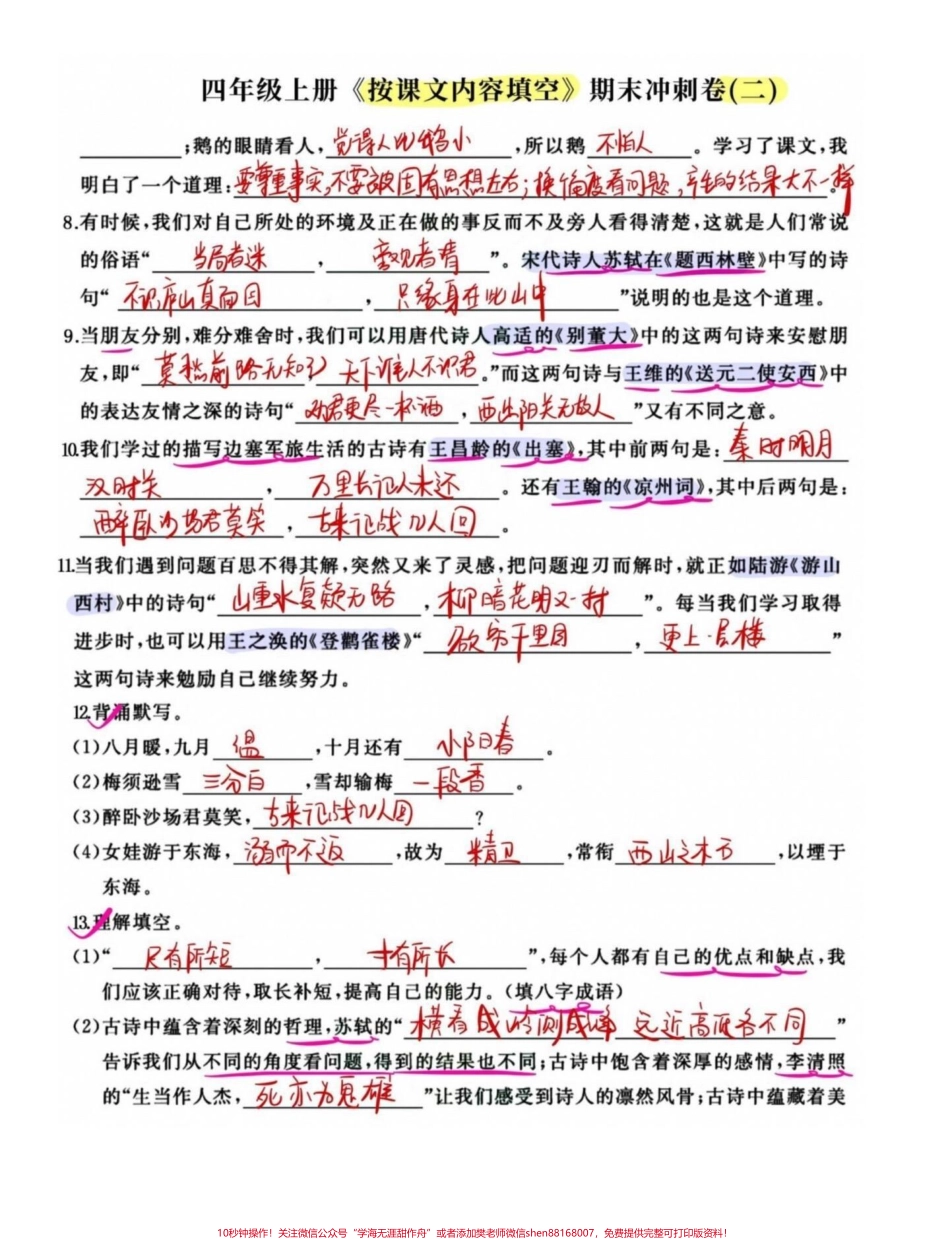 四年级上册《按课文内容填空》期末冲刺卷(二)
________;鹅的眼睛看人,觉得人比鹅小,所以鹅 不怕人 。学习了课文,我
明白了一个道理:要尊重事实,不要被固有思想左右;换角度看问题,产生的结果大不一样。
8.有时候,我们对自己所处的环境及正在做的事反而不及旁人看得清楚,这就是人们常说
的俗语“ 当局者迷 , 旁观者清 ”。宋代诗人苏轼在《题西林壁》中写的诗
句“ 不识庐山真面目 , 只缘身在此山中 ”说明的也是这个道理。
9.当朋友分别,难分难舍时,我们可以用唐代诗人高适的《别董大》中的这两句诗来安慰朋
友,即“ 莫愁前路无知己 天下谁人不识君 。”而这两句诗与王维的《送元二使安西》中
的表达友情之深的诗句“ 劝君更尽一杯酒 , 西出阳关无故人 ”又有不同之意。
10.我们学过的描写边塞军旅生活的古诗有王昌龄的《出塞》,其中前两句是: 秦时明月
汉时关 , 万里长征人未还 。还有王翰的《凉州词》,其中后两句是:
醉卧沙场君莫笑 , 古来征战几人回 。
11.当我们遇到问题百思不得其解,突然又来了灵感,把问题迎刃而解时,就正如陆游《游山
西村》中的诗句“ 山重水复疑无路 , 柳暗花明又一村 ”。每当我们学习取得
进步时,也可以用王之涣的《登鹳雀楼》“ 欲穷千里目 , 更上一层楼 ”
这两句诗来勉励自己继续努力。
12.背诵默写。
(1)八月暖,九月 温 ,十月还有 小阳春 。
(2)梅须逊雪 三分白 ,雪却输梅 一段香 。
(3)醉卧沙场君莫笑, 古来征战几人回 ?
(4)女娃游于东海, 溺而不返 ,故为 精卫 ,常衔 西山之木石 ,以堙于
东海。
13.理解填空。
(1)“ 尺有所短 , 寸有所长 ”,每个人都有自己的优点和缺点,我
们应该正确对待,取长补短,提高自己的能力。(填八字成语)
(2)古诗中蕴含着深刻的哲理,苏轼的“ 横看成岭侧成峰 远近高低各不同 ”
告诉我们从不同的角度看问题,得到的结果也不同;古诗中饱含着深厚的感情,李清照
的“生当作人杰, 死亦为鬼雄 ”让我们感受到诗人的凛然风骨;古诗中蕴藏着美
10秒钟操作!关注微信公众号“学海无涯甜作舟”或者添加樊老师微信shen88168007,免费提供完整可打印版资料!